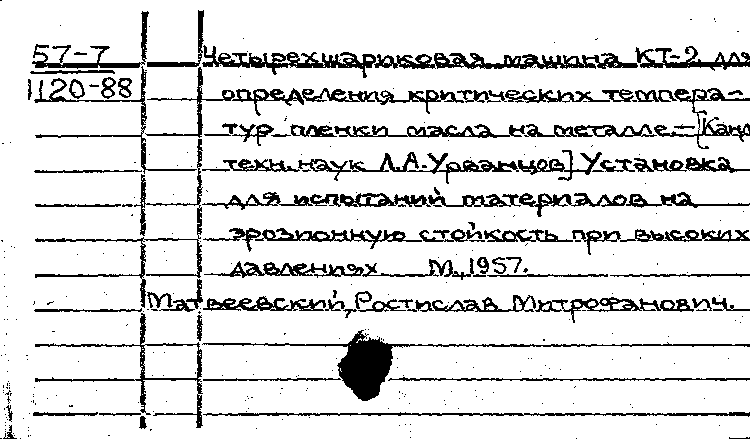 57-7
1120-88
Четырехшариковая машина КТ-2 для
определения критических темпера-
тур пленки масла на металле.-[Канд.
техн. наук Л.А.Урванцов] Установка
для испытаний материалов на
эрозионную стойкость при высоких
давлениях. М.,1957.
Матвеевский, Ростислав Митрофанович.